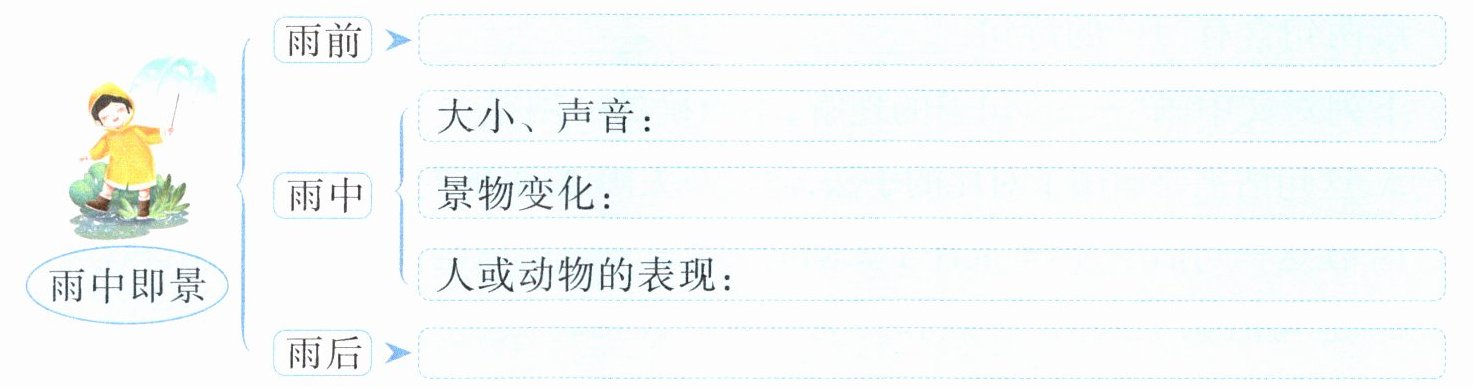 雨前
大小、声音：
雨中
景物变化：
人或动物的表现：
雨中即景
雨后